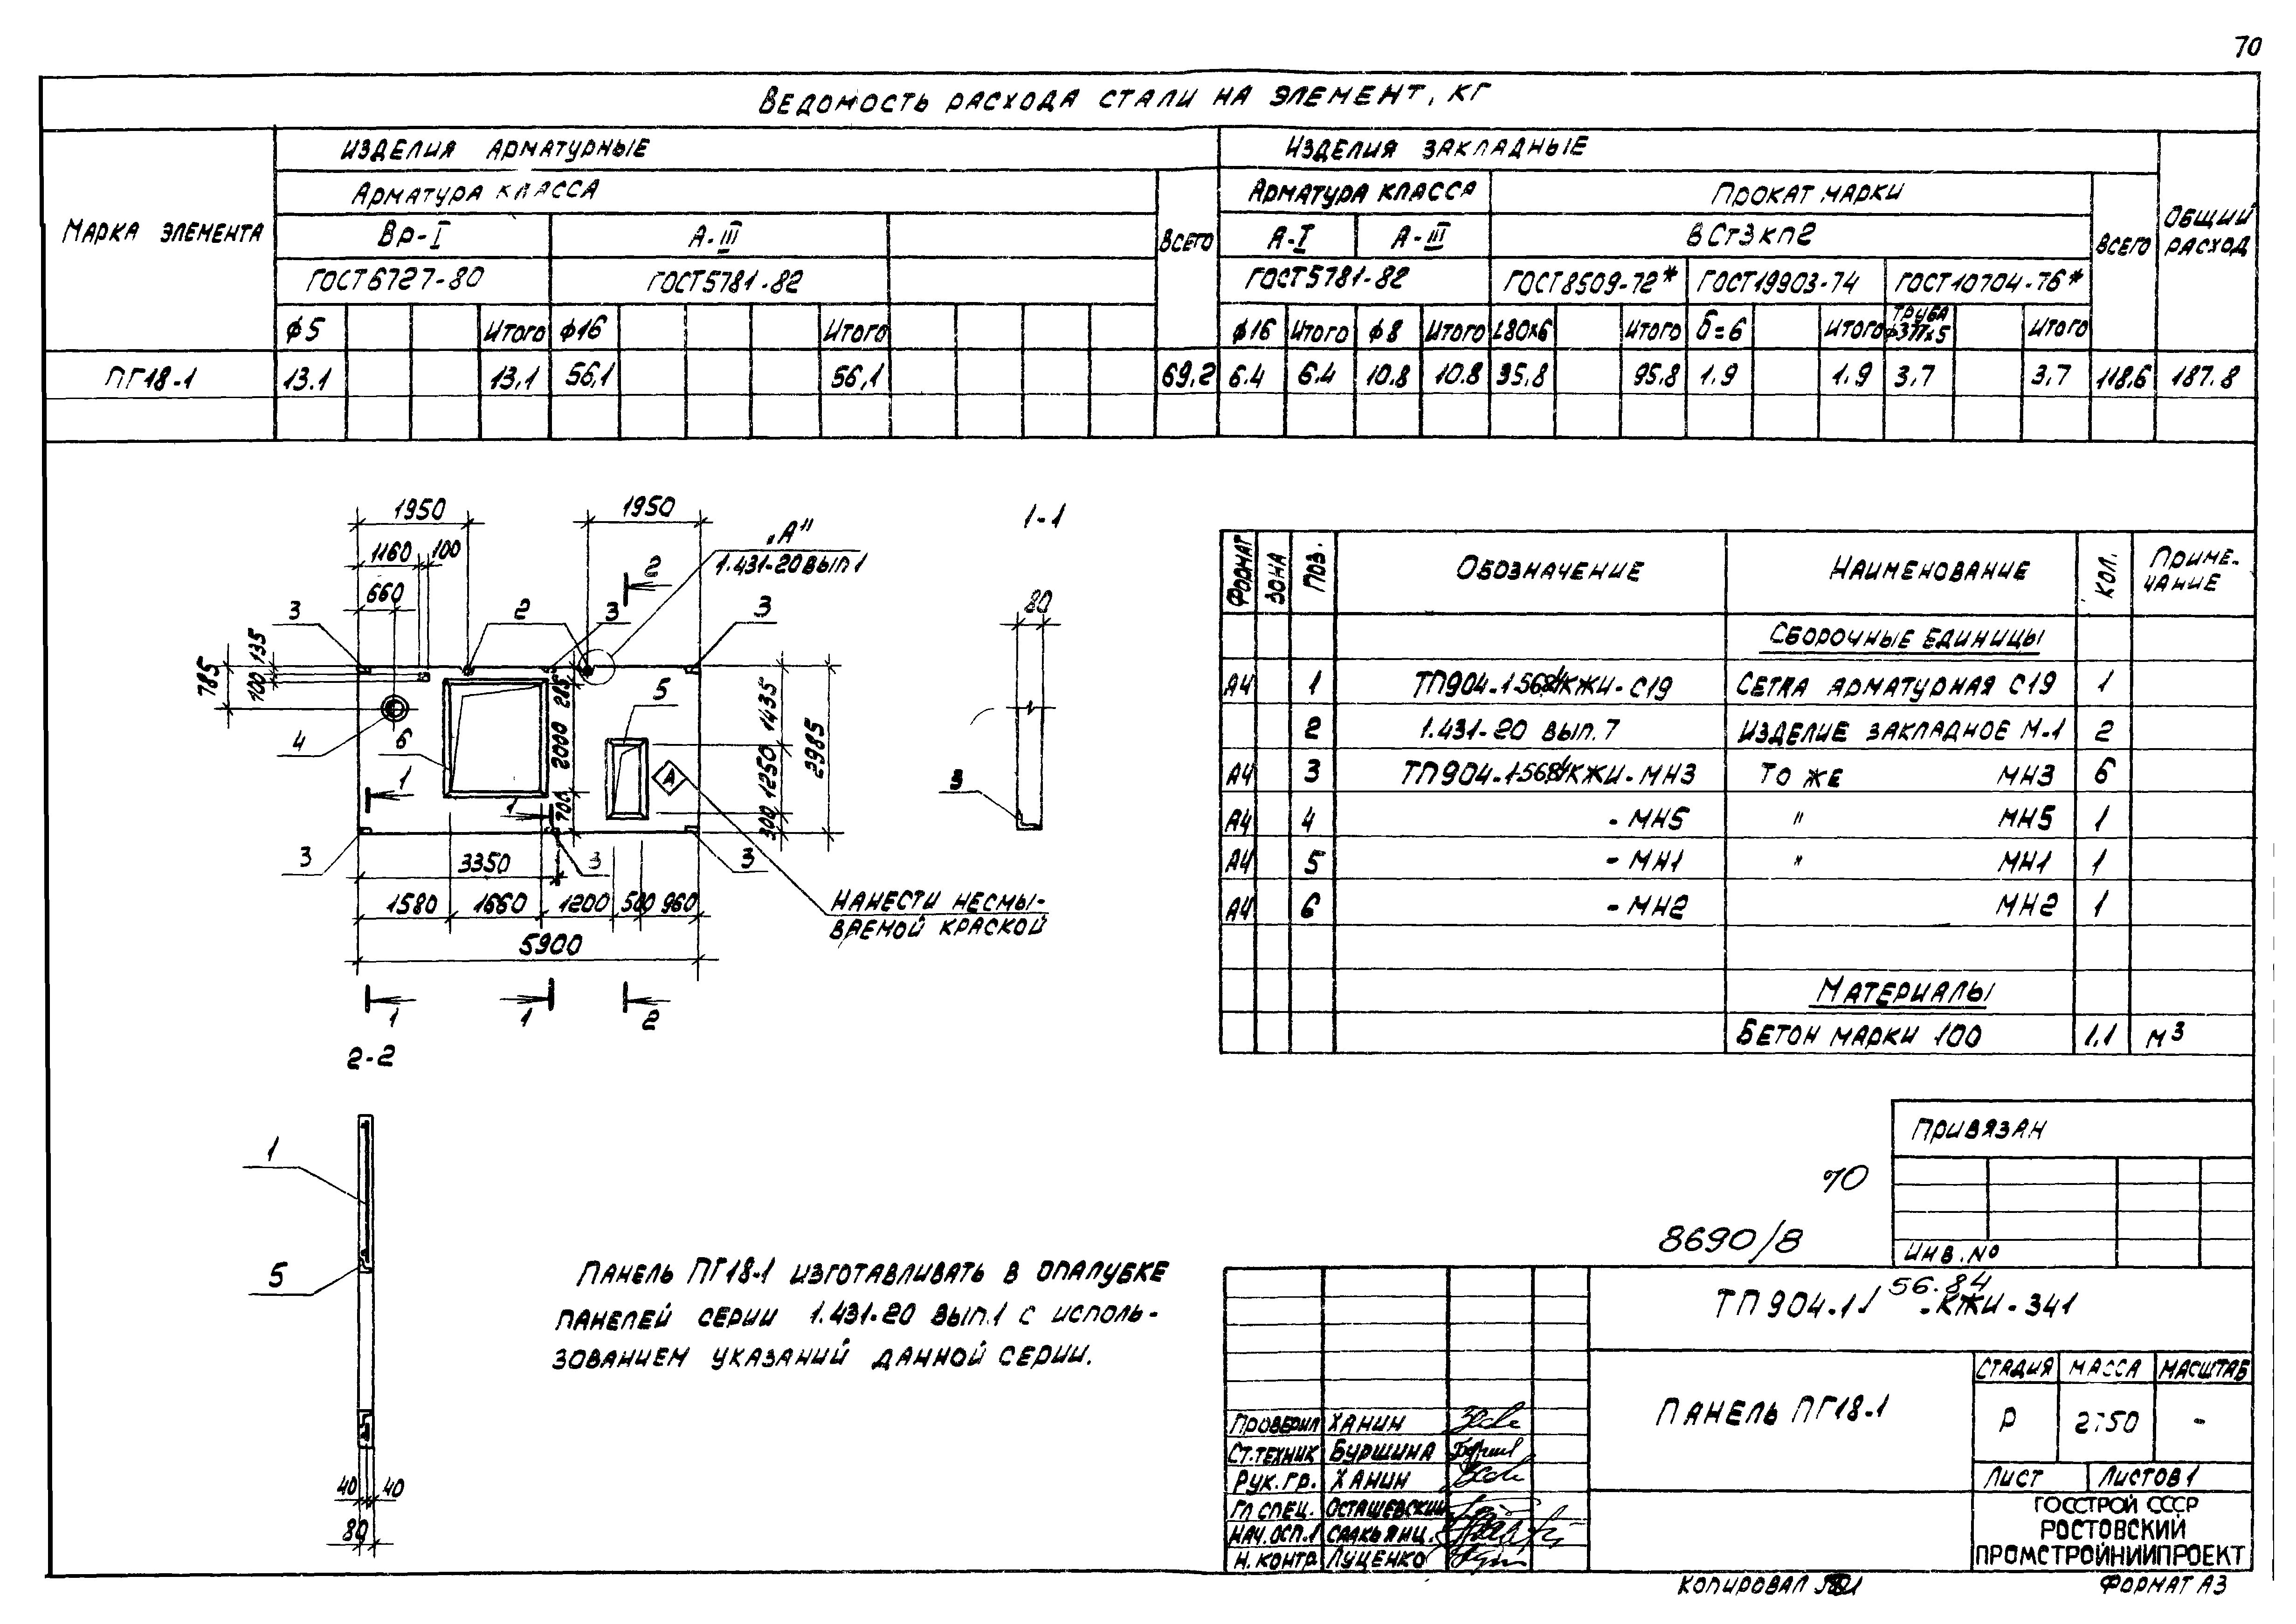 70
Ведомость расхода стали на элемент, кг
Марка элемента
Изделия арматурные
Изделия закладные
Общий расход
Арматура класса
Всего
Арматура класса
Прокат марки
Всего
Вр-I
А-III
А-I
А-III
ВСт3кп2
ГОСТ 6727-80
ГОСТ 5781-82
ГОСТ 5781-82
ГОСТ 8509-72*
ГОСТ 19903-74
ГОСТ 10704-76*
ф5 Итого ф16 Итого ф16 Итого ф8 Итого L80х6 Итого б=6 Итого Труба ф377х5 Итого
ПГ18-1 13.1 13,1 56,1 56,1 69,2 6.4 6.4 10.8 10.8 95,8 95,8 1.9 1.9 3,7 3,7 118,6 187.8
1950
1950
1160
100
660
„А"
1.431-20 вып 1
2
3
2
3
3
135
100
785
4
6
5
А
285
2000
700
1435
1250
300
2985
1
1
3
3
3
3350
1580
1660
1200
500
960
5900
Нанести несмы-
ваемой краской
1
1
2
1-1
80
3
2-2
1
5
40
40
80
Формат
Зона
Поз.
Обозначение
Наименование
Кол.
Приме-
чание
Сборочные единицы
А4 1 ТП904-1-56.84КЖИ-С19 Сетка арматурная С19 1
2 1.431-20 вып. 7 Изделие закладное М-1 2
А4 3 ТП904-1-56.84КЖИ-МН3 То же МН3 6
А4 4 -МН5 " МН5 1
А4 5 -МН1 " МН1 1
А4 6 -МН2 МН2 1
Материалы
Бетон марки 100 1.1 м3
Панель ПГ18-1 изготавливать в опалубке
панелей серии 1.431-20 вып.1 с исполь-
зованием указаний данной серии.
70
8690/8
Привязан
Инв. №
ТП 904-1-56.84-КЖИ-341
Панель ПГ18-1
Стадия Масса Масштаб
Р 2750 -
Лист Листов 1
ГОССТРОЙ СССР
РОСТОВСКИЙ
ПРОМСТРОЙНИИПРОЕКТ
Проверил Ханин
Ст.техник Буршина
Рук. гр. Ханин
Гл спец. Осташевский
Нач. осп.1 Саакьянц
Н. контр. Луценко
Копировал
Формат А3